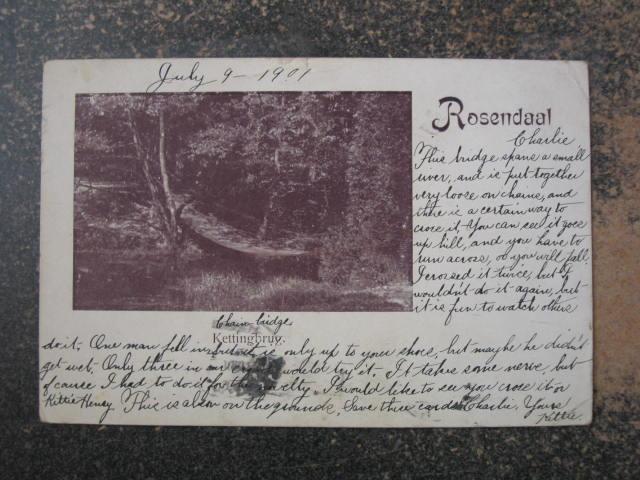 July 9 - 1901
Rosendaal
Charlie
This bridge spans a small
river, and is put together
very loose on chains, and
there is a certain way to
cross it. You can see it goes
up hill, and you have to
run across, or you will fall.
I crossed it twice, but I
wouldn't do it again, but
it is fun to watch others
Chain bridge
Kettingbrug.
do it. One man fell in, but it is only up to your shoes, but maybe he didn't
get wet. Only three in our crowd would try it. It takes some nerve, but
of course I had to do it for the novelty. I would like to see you cross it or
Kittie Henry. This is also on the grounds. Save these cards Charlie. Yours
Kittie.